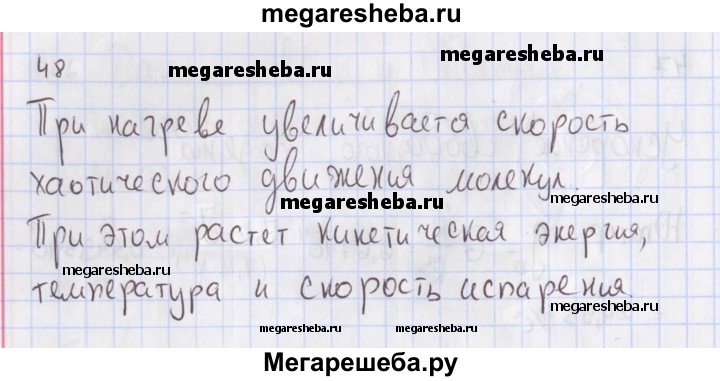 megaresheba.ru
48
megaresheba.ru
При нагреве увеличивается скорость
хаотического движения молекул.
megaresheba.ru
megaresheba.ru
При этом растет кинетическая энергия,
megaresheba.ru
температура и скорость испарения.
megaresheba.ru
megaresheba.ru
Мегарешеба.ру